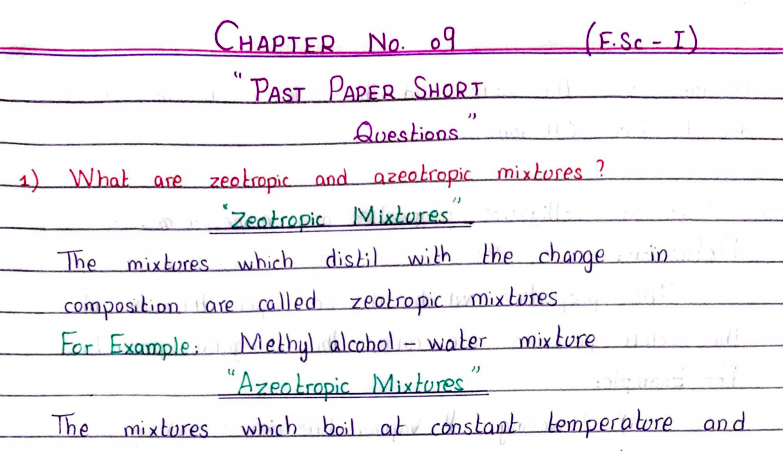 CHAPTER No. 09 (F.Sc - I)
"PAST PAPER SHORT
Questions"
1) What are zeotropic and azeotropic mixtures?
"Zeotropic Mixtures"
The mixtures which distil with the change in
composition are called zeotropic mixtures
For Example: Methyl alcohol - water mixture
"Azeotropic Mixtures"
The mixtures which boil at constant temperature and